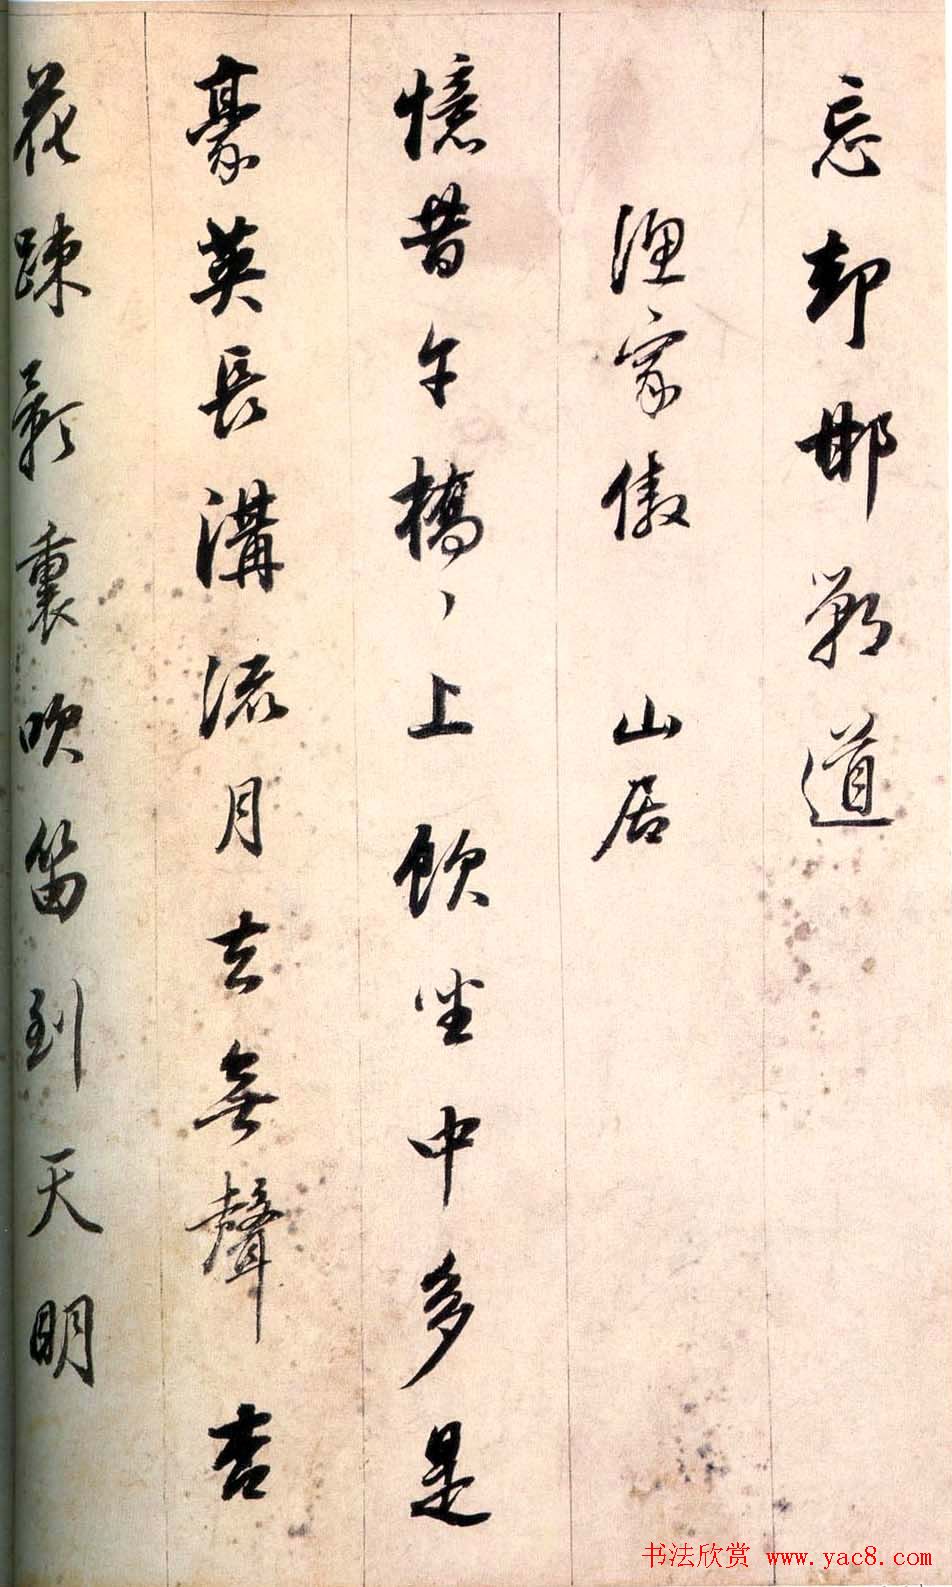 忘却邯鄲道
漁家傲 山居
憶昔午橋丶上飲坐中多是
豪英長溝流月去無聲杏
花踈影裏吹笛到天明
书法欣赏 www.yac8.com